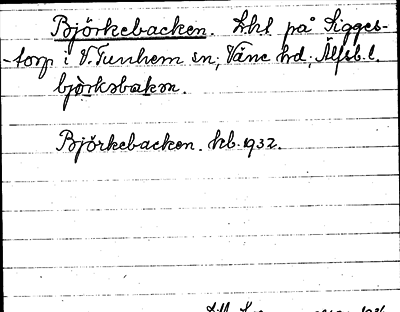 Björkebacken. Lht på Sigges-
-torp i V. Tunhem sn; Väne hd; Älfsb. l.
bjö̀rkəbakən.
Björkebacken. kb. 1932.